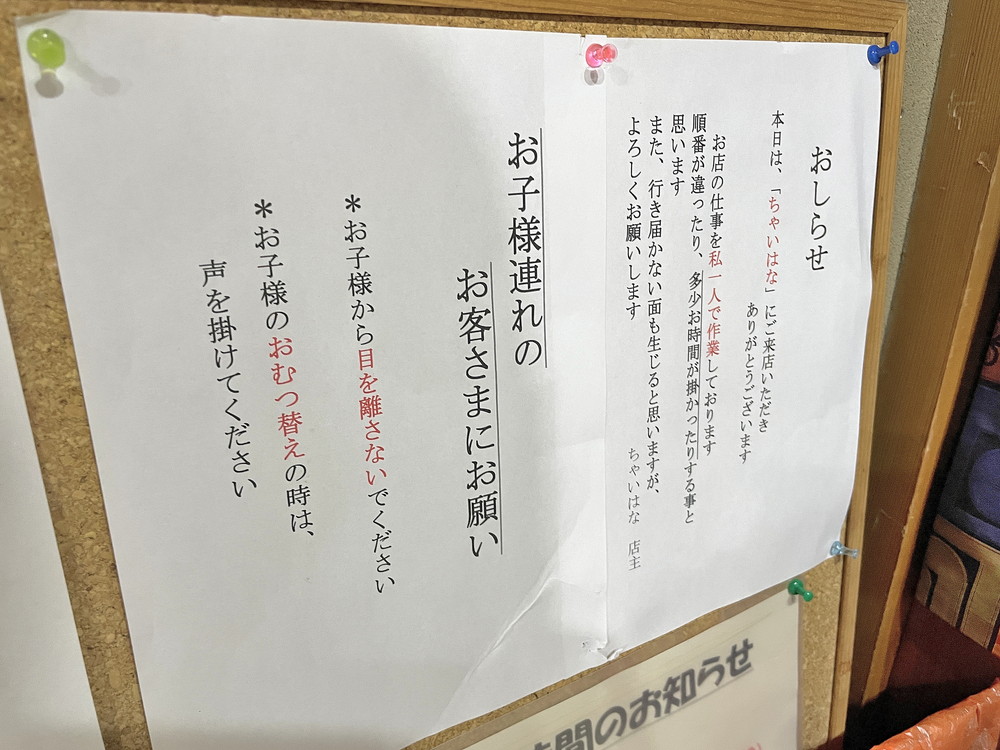 おしらせ
本日は、「ちゃいはな」にご来店いただき
ありがとうございます
お店の仕事を私一人で作業しております
順番が違ったり、多少お時間が掛かったりする事と
思います
また、行き届かない面も生じると思いますが、
よろしくお願いします
ちゃいはな 店主
お子様連れの
お客さまにお願い
＊お子様から目を離さないでください
＊お子様のおむつ替えの時は、
声を掛けてください
間のお知らせ